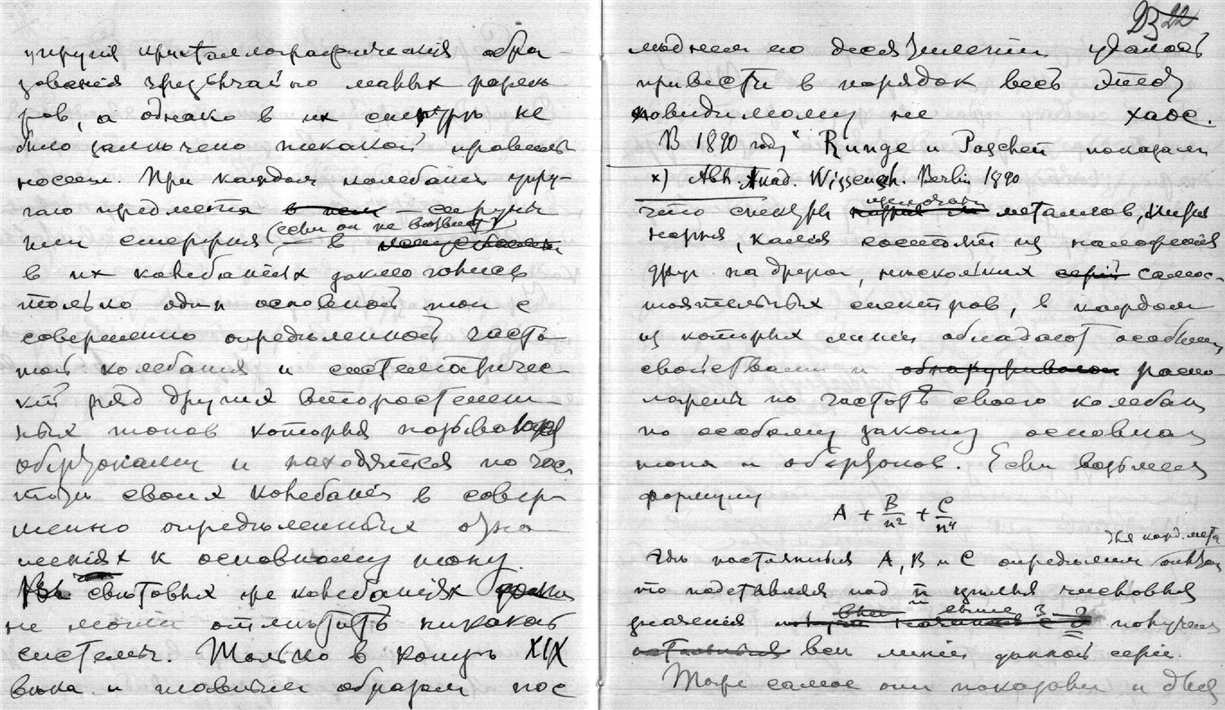 упругiя кристаллографическiя обра-
зованiя чрезвычайно малых разме-
ров, а однако в их спектрѣ не
было замѣчено никакой правиль
ности. При каждом колебанiи упру-
гаго предмета в нем струны
или стержня (если он не возбужд) в
в их колебанiях заключались
только один основной тон с
совершенно определенной часто-
той колебанiя и систематичес-
кiй ряд других второстепен-
ных тонов которые называются
обертонами и находятся по час
тоте своих колебанiй в совер-
шенно определенных отно-
шенiях к основному тону.
В световых же колебанiях
не могли отметить никакой
системы. Только в концѣ XIX
вѣка и главным образом пос
23 22
лѣднем его десятилетiи удалось
привести в порядок весь этот
повидимому не хаос.
В 1890 году x) Runge и Paschen показали
x) Abh. Akad. Wissensch. Berlin 1890
что спектры щелочных металлов, лития
натрия, калiя состоят из наложенiя
друг на друга, нѣскольких серiй самос-
тоятельных спектров, в каждом
из которых линiи обладают особыми
свойствами и обнаруживали распо-
ложены по частотѣ своего колебанiя
по особому закону основных
тона и обертонов. Если возьмем
формулу
A + B/n² + C/n⁴
для кажд. мета
гдѣ постоянныя A, B и C определим
то подставляя под n цѣлыя числовыя
значенiя выше 3 получим
остальныя всѣ линiи данной серiи.
Тоже самое они показали и для